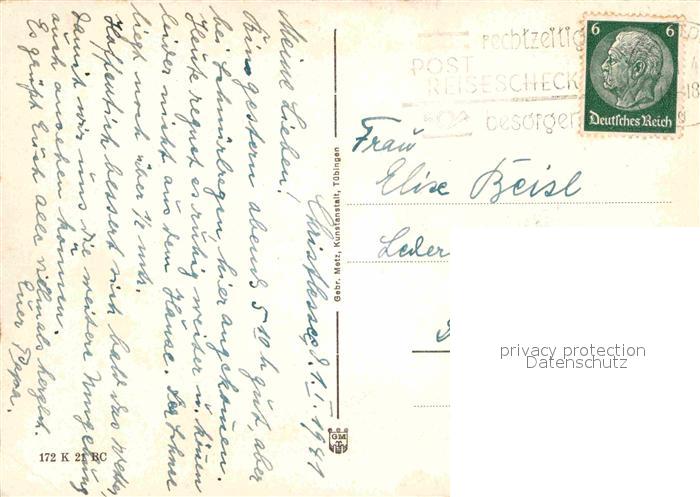 Christlessee, d. 1.I.1941
Meine Lieben!
Bin gestern abend 5 10 h gut, aber
bei Schnürlregen, hier angekommen.
Heute regnet es ruhig weiter u. können
leider nicht aus dem Hause. Der Schnee
liegt noch über ½ mtr.
Hoffentlich bessert sich bald das Wetter,
damit wir uns die weitere Umgebung
auch ansehen können.
Es grüßt Euch alle vielmals herzlich
Euer Papa.
172 K 21 BC
Gebr. Metz, Kunstanstalt, Tübingen
GM
rechtzeitig
POST
REISESCHECK
besorgen
6 6
Deutsches Reich
Frau
Elise Beisl
Leder
privacy protection
Datenschutz